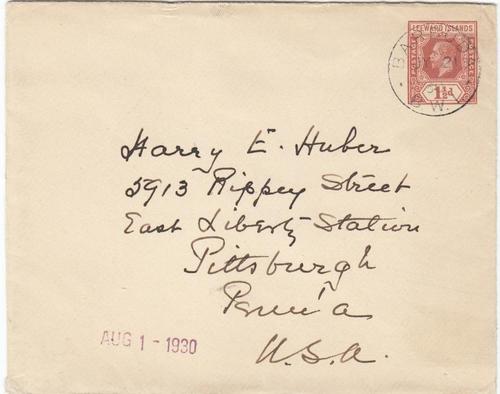 LEEWARD ISLANDS
POSTAGE
1½d
W.
Harry E. Huber
5913 Rippey Street
East Liberty Station
Pittsburgh
Penn'a
U.S.A.
AUG 1 - 1930